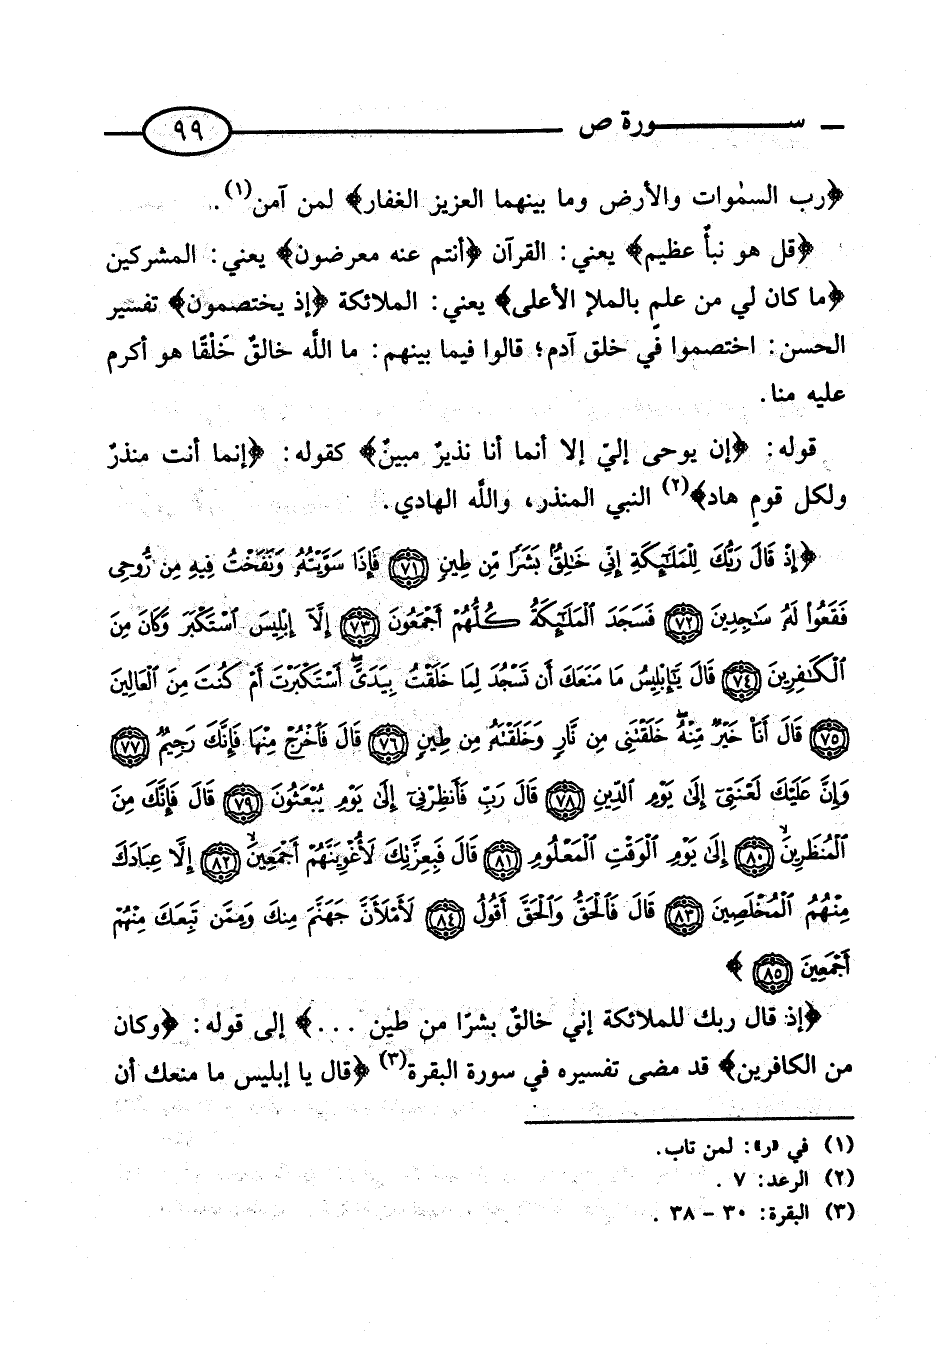 سورة ص ٩٩
﴿رب السمٰوات والأرض وما بينهما العزيز الغفار﴾ لمن آمن(١).
﴿قل هو نبأٌ عظيم﴾ يعني: القرآن ﴿أنتم عنه معرضون﴾ يعني: المشركين
﴿ما كان لي من علمٍ بالملإ الأعلى﴾ يعني: الملائكة ﴿إذ يختصمون﴾ تفسير
الحسن: اختصموا في خلق آدم؛ قالوا فيما بينهم: ما اللَّه خالقٌ خَلْقًا هو أكرم
عليه منا.
قوله: ﴿إن يوحى إليّ إلا أنما أنا نذيرٌ مبينٌ﴾ كقوله: ﴿إنما أنت منذرٌ
ولكل قومٍ هاد﴾(٢) النبي المنذر، واللَّه الهادي.
﴿إِذْ قَالَ رَبُّكَ لِلْمَلَٰٓئِكَةِ إِنِّي خَٰلِقٌۢ بَشَرًا مِّن طِينٍ ٧١ فَإِذَا سَوَّيْتُهُۥ وَنَفَخْتُ فِيهِ مِن رُّوحِى
فَقَعُوا۟ لَهُۥ سَٰجِدِينَ ٧٢ فَسَجَدَ ٱلْمَلَٰٓئِكَةُ كُلُّهُمْ أَجْمَعُونَ ٧٣ إِلَّآ إِبْلِيسَ ٱسْتَكْبَرَ وَكَانَ مِنَ
ٱلْكَٰفِرِينَ ٧٤ قَالَ يَٰٓإِبْلِيسُ مَا مَنَعَكَ أَن تَسْجُدَ لِمَا خَلَقْتُ بِيَدَىَّۖ أَسْتَكْبَرْتَ أَمْ كُنتَ مِنَ ٱلْعَالِينَ
٧٥ قَالَ أَنَا۠ خَيْرٌ مِّنْهُۖ خَلَقْتَنِى مِن نَّارٍ وَخَلَقْتَهُۥ مِن طِينٍ ٧٦ قَالَ فَٱخْرُجْ مِنْهَا فَإِنَّكَ رَجِيمٌ ٧٧
وَإِنَّ عَلَيْكَ لَعْنَتِىٓ إِلَىٰ يَوْمِ ٱلدِّينِ ٧٨ قَالَ رَبِّ فَأَنظِرْنِىٓ إِلَىٰ يَوْمِ يُبْعَثُونَ ٧٩ قَالَ فَإِنَّكَ مِنَ
ٱلْمُنظَرِينَ ٨٠ إِلَىٰ يَوْمِ ٱلْوَقْتِ ٱلْمَعْلُومِ ٨١ قَالَ فَبِعِزَّتِكَ لَأُغْوِيَنَّهُمْ أَجْمَعِينَ ٨٢ إِلَّا عِبَادَكَ
مِنْهُمُ ٱلْمُخْلَصِينَ ٨٣ قَالَ فَٱلْحَقُّ وَٱلْحَقَّ أَقُولُ ٨٤ لَأَمْلَأَنَّ جَهَنَّمَ مِنكَ وَمِمَّن تَبِعَكَ مِنْهُمْ
أَجْمَعِينَ ٨٥﴾
﴿إذ قال ربك للملائكة إني خالقٌ بشرًا من طين ...﴾ إلى قوله: ﴿وكان
من الكافرين﴾ قد مضى تفسيره في سورة البقرة(٣) ﴿قال يا إبليس ما منعك أن
(١) في «ر»: لمن تاب.
(٢) الرعد: ٧ .
(٣) البقرة: ٣٠ – ٣٨ .